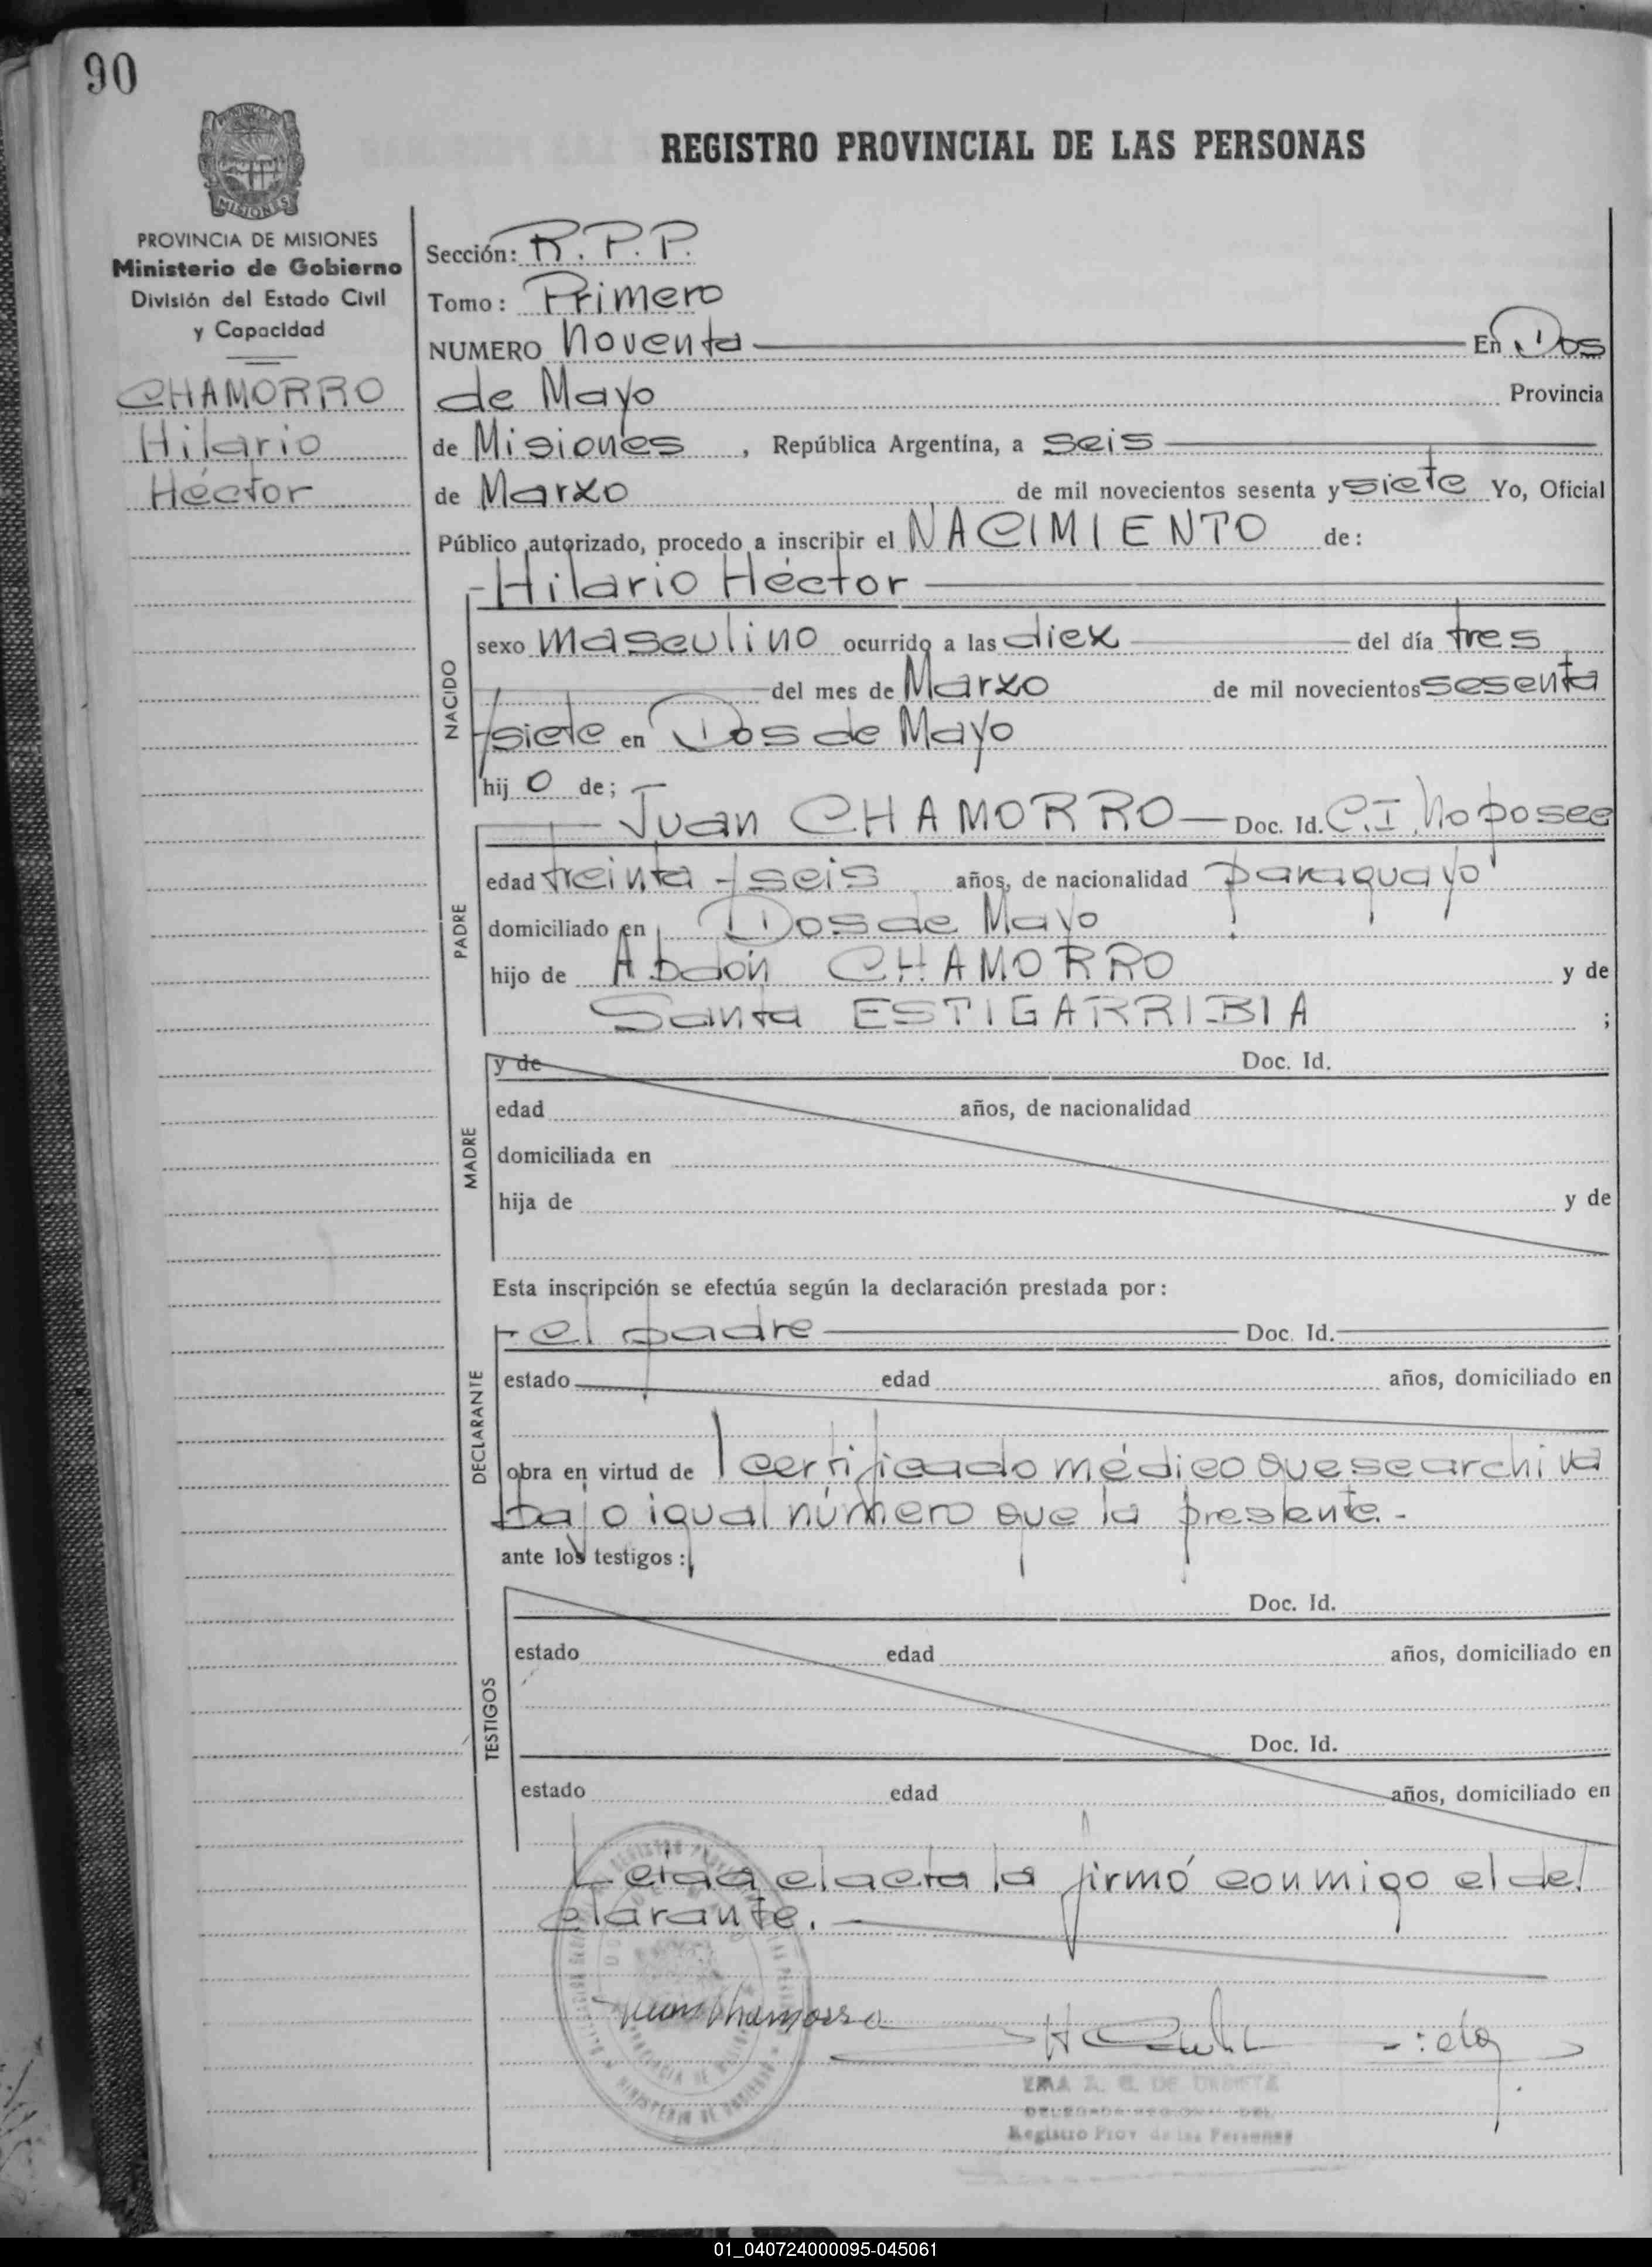 90
REGISTRO PROVINCIAL DE LAS PERSONAS
MISIONES
PROVINCIA DE MISIONES
Ministerio de Gobierno
División del Estado Civil
y Capacidad
CHAMORRO
Hilario
Héctor
Sección: R.P.P.
Tomo: Primero
NUMERO Noventa En Dos
de Mayo Provincia
de Misiones, República Argentina, a seis
de Marzo de mil novecientos sesenta y siete Yo, Oficial
Público autorizado, procedo a inscribir el NACIMIENTO de:
Hilario Héctor
NACIDO
sexo masculino ocurrido a las diez del día tres
del mes de Marzo de mil novecientos sesenta
y siete en Dos de Mayo
hij o de;
PADRE
Juan CHAMORRO Doc. Id. C.I. No posee
edad treinta y seis años, de nacionalidad paraguayo
domiciliado en Dos de Mayo
hijo de Abdón CHAMORRO y de
Santa ESTIGARRIBIA ;
MADRE
y de Doc. Id.
edad años, de nacionalidad
domiciliada en
hija de y de
Esta inscripción se efectúa según la declaración prestada por:
DECLARANTE
el padre Doc. Id.
estado edad años, domiciliado en
obra en virtud de certificado médico que se archiva
bajo igual número que la presente.-
ante los testigos:
TESTIGOS
Doc. Id.
estado edad años, domiciliado en
Doc. Id.
estado edad años, domiciliado en
Leida el acta la firmó conmigo el de
clarante.
Juan Chamorro
DELEGADA
Registro Prov de las Personas
01_040724000095-045061